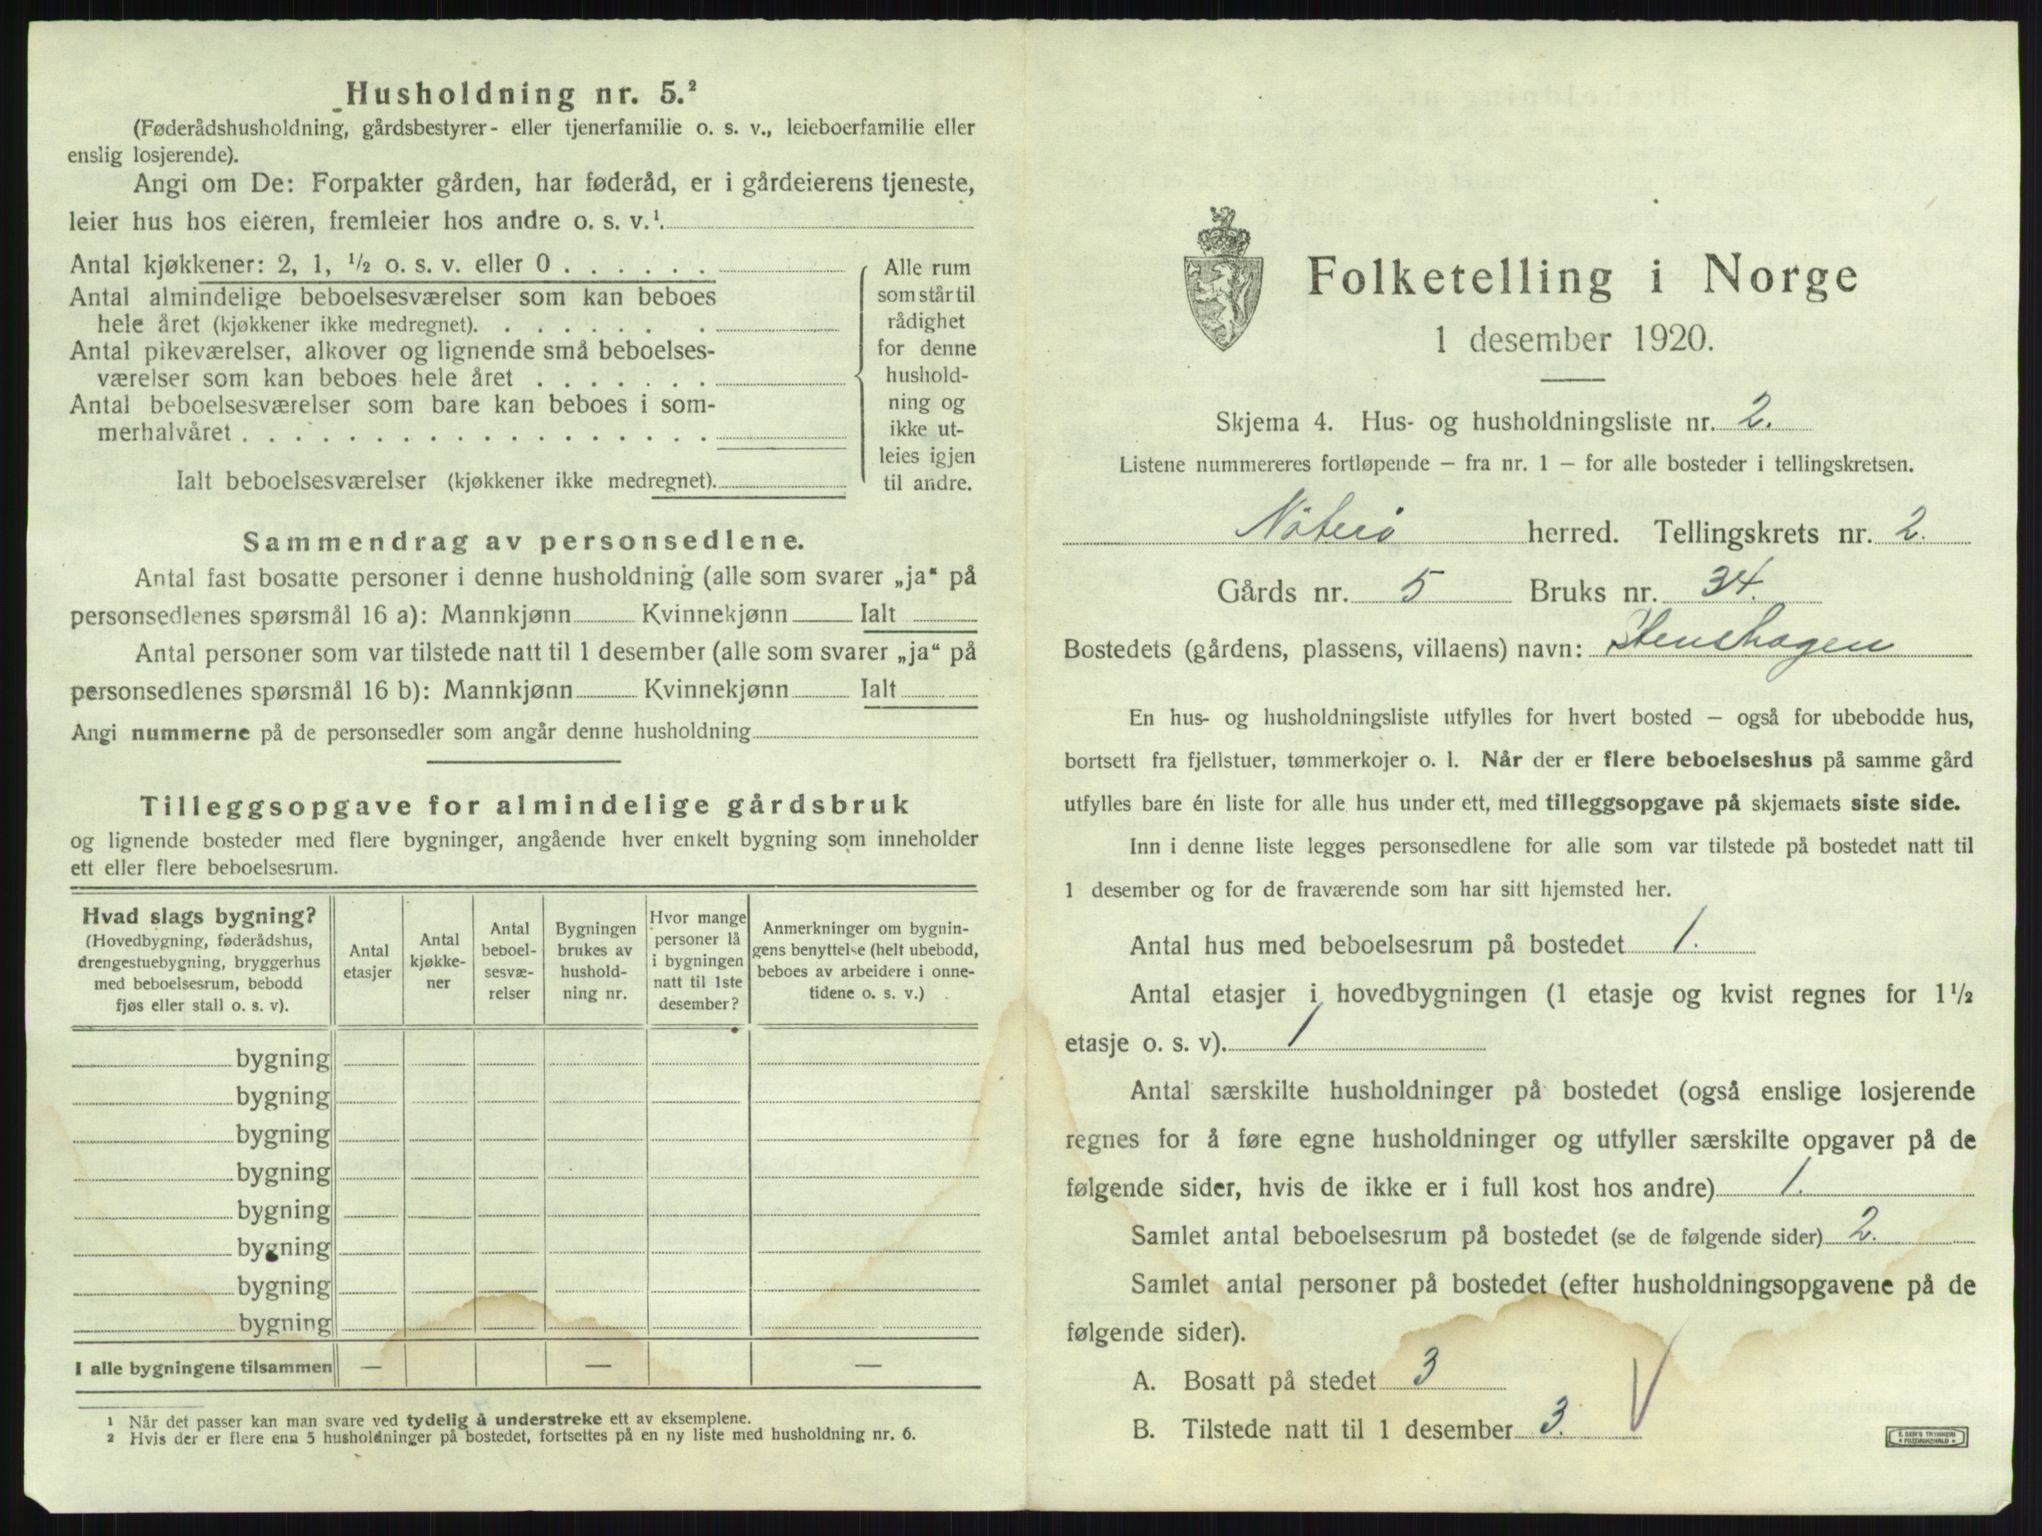 Husholdning nr. 5.²
(Føderådshusholdning, gårdsbestyrer- eller tjenerfamilie o. s. v., leieboerfamilie eller
enslig losjerende).
Angi om De: Forpakter gården, har føderåd, er i gårdeierens tjeneste,
leier hus hos eieren, fremleier hos andre o. s. v.¹
Antal kjøkkener: 2, 1, ½ o. s. v. eller 0 . . . . . .
Antal almindelige beboelsesværelser som kan beboes
hele året (kjøkkener ikke medregnet). . . . . . . . .
Antal pikeværelser, alkover og lignende små beboelses-
værelser som kan beboes hele året . . . . . . .
Antal beboelsesværelser som bare kan beboes i som-
merhalvåret . . . . . . . . . . . . . . . . . .
Ialt beboelsesværelser (kjøkkener ikke medregnet).
Alle rum
som står til
rådighet
for denne
hushold-
ning og
ikke ut-
leies igjen
til andre.
Sammendrag av personsedlene.
Antal fast bosatte personer i denne husholdning (alle som svarer „ja“ på
personsedlenes spørsmål 16 a): Mannkjønn Kvinnekjønn Ialt
Antal personer som var tilstede natt til 1 desember (alle som svarer „ja“ på
personsedlenes spørsmål 16 b): Mannkjønn Kvinnekjønn Ialt
Angi nummerne på de personsedler som angår denne husholdning
Tilleggsopgave for almindelige gårdsbruk
og lignende bosteder med flere bygninger, angående hver enkelt bygning som inneholder
ett eller flere beboelsesrum.
Hvad slags bygning?
(Hovedbygning, føderådshus,
drengestuebygning, bryggerhus
med beboelsesrum, bebodd
fjøs eller stall o. s. v).
Antal
etasjer
Antal
kjøkke-
ner
Antal
beboel-
sesvæ-
relser
Bygningen
brukes av
hushold-
ning nr.
Hvor mange
personer lå
i bygningen
natt til 1ste
desember?
Anmerkninger om bygnin-
gens benyttelse (helt ubebodd,
beboes av arbeidere i onne-
tidene o. s. v.)
bygning
bygning
bygning
bygning
bygning
bygning
bygning
bygning
I alle bygningene tilsammen — — —
¹ Når det passer kan man svare ved tydelig å understreke ett av eksemplene.
² Hvis der er flere enn 5 husholdninger på bostedet, fortsettes på en ny liste med husholdning nr. 6.
Folketelling i Norge
1 desember 1920.
Skjema 4. Hus- og husholdningsliste nr. 2.
Listene nummereres fortløpende – fra nr. 1 – for alle bosteder i tellingskretsen.
Nøterø herred. Tellingskrets nr. 2.
Gårds nr. 5 Bruks nr. 34.
Bostedets (gårdens, plassens, villaens) navn: Stenshagen
En hus- og husholdningsliste utfylles for hvert bosted – også for ubebodde hus,
bortsett fra fjellstuer, tømmerkojer o. l. Når der er flere beboelseshus på samme gård
utfylles bare én liste for alle hus under ett, med tilleggsopgave på skjemaets siste side.
Inn i denne liste legges personsedlene for alle som var tilstede på bostedet natt til
1 desember og for de fraværende som har sitt hjemsted her.
Antal hus med beboelsesrum på bostedet 1.
Antal etasjer i hovedbygningen (1 etasje og kvist regnes for 1½
etasje o. s. v). 1
Antal særskilte husholdninger på bostedet (også enslige losjerende
regnes for å føre egne husholdninger og utfyller særskilte opgaver på de
følgende sider, hvis de ikke er i full kost hos andre) 1.
Samlet antal beboelsesrum på bostedet (se de følgende sider) 2.
Samlet antal personer på bostedet (efter husholdningsopgavene på de
følgende sider).
A. Bosatt på stedet 3
B. Tilstede natt til 1 desember 3.